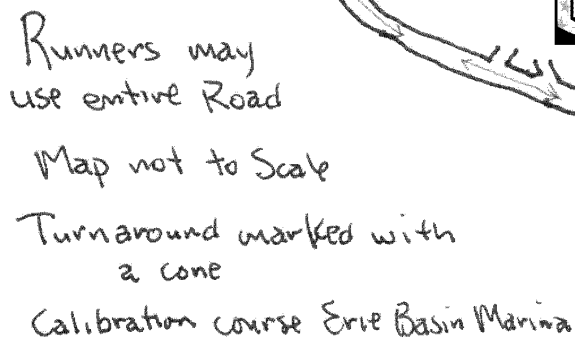 Runners may
use entire Road
Map not to Scale
Turnaround marked with
a cone
Calibration course Erie Basin Marina